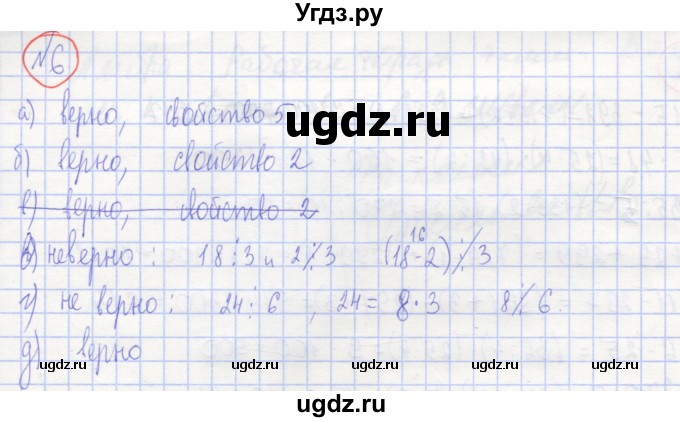 Угдз.ру
№6
а) верно, свойство 5
ugdz.ru
б) верно, свойство 2
в) верно, свойство 2
в) неверно : 18⋮3 и 2⋮̸3 (18-2)⋮̸3
16
г) не верно : 24⋮6, 24=8·3 8⋮̸6
д) верно
ugdz.ru ugdz.ru ugdz.ru ugdz.ru
ugdz.ru